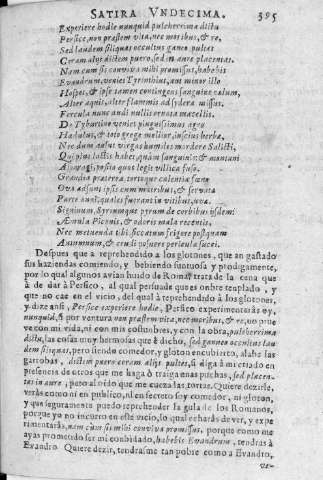 SATIRA VNDECIMA. 395
Experiere hodie nunquid pulcherrima dictu
Persice, non præstem vita, nec moribus, & re,
Sed laudem siliquas occultus ganeo pultes
Coram alijs dictem puero, sed in aure placentas.
Nam cum sis conviva mihi promissus, habebis
Evandrum, venies Tyrinthius, aut minor illo
Hospes, & ipse tamen contingens sanguine cælum,
Alter aquis, alter flammis ad sydera missus.
Fercula nunc audi nullis ornata macellis.
De Tyburtino veniet pinguissimus agro
Hædulus, & toto grege mollior, inscius herbæ,
Nec dum ausus virgas humilis mordere Salicti,
Qui plus lactis habet, quam sanguinis: & montani
Asparagi, posito quos legit villica fuso.
Grandia præterea, tortoque calentia fæno
Ova adsunt ipsis cum matribus, & servatæ
Parte anni, quales fuerant in vitibus, uvæ.
Signinum, Syriumque pyrum de corbibus ijsdem
Æmula Picenis, & odoris mala recentis,
Nec metuenda tibi, siccatum frigore postquam
Autumnum, & crudi posuere pericula succi.
Despues que a reprehendido a los glotones, que an gastado
sus haziendas comiendo, y bebiendo suntuosa y prodigamente,
por lo qual algunos avian huido de Roma, trata de la cena que
à de dar à Persico, al qual persuade que es onbre templado, y
que no cae en el vicio, del qual à reprehendido à los glotones,
y dize ansi, Persice experiere hodie, Persico experimentarâs oy,
nunquid, si por ventura non præstem vita, nec moribus, & re, no prue
ve con mi vida, ni con mis costumbres, y con la obra, pulcherrima
dictu, las cosas muy hermosas que è dicho, sed ganeo occultus lau
dem siliquas, pero siendo comedor, y gloton encubierto, alabe las
garrobas, dictem puero coram alijs pultes, si diga à mi criado en
presencia de otros que me haga ò traiga unas puchas, sed placen-
tas in aure, pero al oido que me cueza las tortas. Quiere dezir,
veràs como ni en publico, ni en secreto soy comedor, ni gloton,
y que seguramente puedo reprehender la gula de los Romanos,
porque yo no incurro en este vicio, lo qual echaràs de ver, y expe
rimentaràs, nam cum sis mihi conviva promissus, porque como me
ayas prometido ser mi conbidado, habebis Evandrum, tendràs à
Evandro. Quiere dezir, tendràsme tan pobre como a Evandro,
ve-